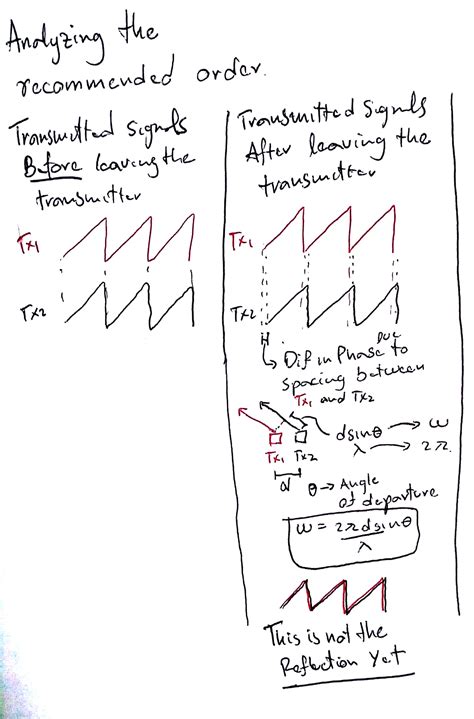 Analyzing the
recommended order.
Transmitted Signals
Before leaving the
transmitter
Tx1
Tx2
Transmitted Signals
After leaving the
transmitter
Tx1
Tx2
Dif in Phase due to
spacing between
Tx1 and Tx2
dsinθ → ω
λ → 2π
Tx1 Tx2
d
θ → Angle
of departure
ω = 2πdsinθ
λ
This is not the
Reflection Yet